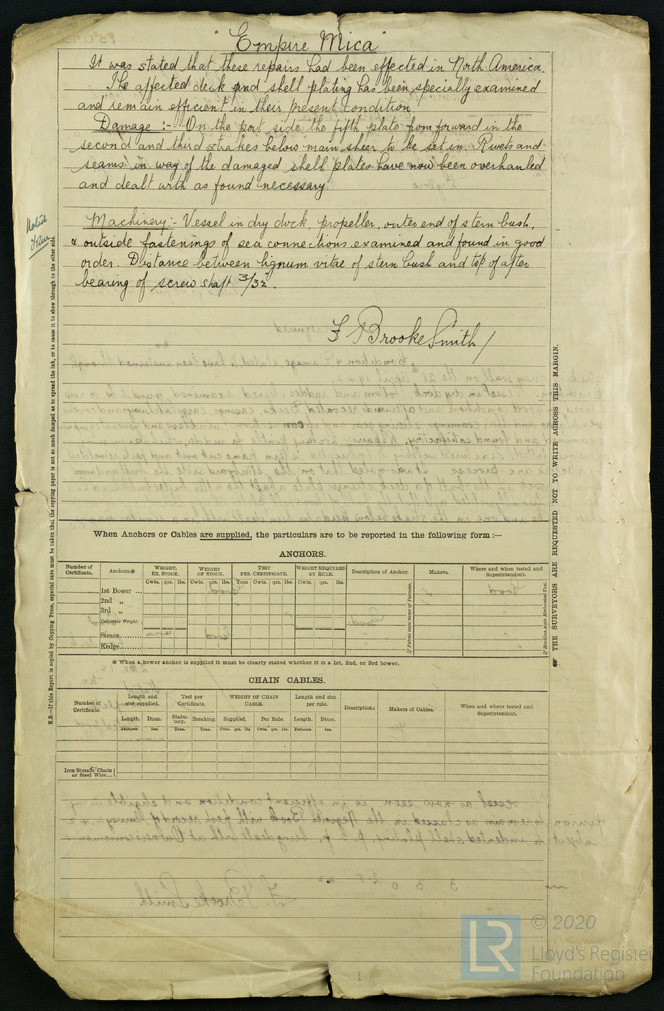 "Empire Mica"
It was stated that these repairs had been effected in North America.
The affected deck and shell plating has been specially examined
and remain efficient in their present condition
Damage :- On the port side the fifth plate from forward in the
second and third strakes below main sheer to be set in. Rivets and
seams in way of the damaged shell plates have now been overhauled
and dealt with as found necessary.
Machinery :- Vessel in dry dock, propeller, outer end of stern bush,
& outside fastenings of sea connections examined and found in good
order. Distance between lignum vitae of stern bush and top of after
bearing of screw shaft 3/32".
F Brooke Smith
N.B.—If this Report is copied by Copying Press, especial care must be taken that the copying paper is not so much damped as to spread the ink, or to cause it to show through to the other side.
THE SURVEYORS ARE REQUESTED NOT TO WRITE ACROSS THIS MARGIN.
When Anchors or Cables are supplied, the particulars are to be reported in the following form :—
ANCHORS.
Number of Certificate. Anchors.* WEIGHT, EX. STOCK. WEIGHT OF STOCK. TEST PER CERTIFICATE. WEIGHT REQUIRED BY RULE. Description of Anchor. Makers. Where and when tested and Superintendent.
Cwts. qrs. lbs. Cwts. qrs. lbs. Tons Cwts. qrs. lbs. Cwts. qrs. lbs.
1st Bower ...
2nd „
3rd „
Collective Weight.
Stream
Kedge
If Patent state name of Patentee.
* When a bower anchor is supplied it must be clearly stated whether it is a 1st, 2nd, or 3rd bower.
CHAIN CABLES.
Number of Certificate. Length and size supplied. Test per Certificate. WEIGHT OF CHAIN CABLE. Length and size per rule. Description. Makers of Cables. When and where tested and Superintendent.
Length. Diam. Statutory. Breaking. Supplied. Per Rule. Length. Diam.
Fathoms. Ins. Tons. Tons. Cwts. qrs. lbs. Cwts. qrs. lbs. Fathoms. Ins.
Iron Stream Chain or Steel Wire
LR
© 2020
Lloyd's Register
Foundation